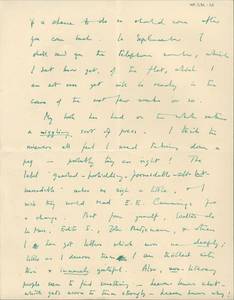 if a chance to do so should come after
you come back in September. I
shall send you the telephone number, which
I hat have got, of the flat, which I
am not sure yet will be ready in the
course of the next four weeks or so.
My book has had on the whole rather
a niggling sort of press. I think the
reviewers all feel I need taking down a
peg — possibly they are right! The
label "gnarled – forbidding, formidable –
incredible" makes me sigh a little, & I
wish they would read E.E. Cummings for
a change. But from yourself, Walter de
la Mare, Edith S., John Betjeman, & others
I have got letters which move me deeply;
little as I deserve them I am
this & immensely grateful. Also, non-literary
people seem to find something – heaven knows what –
which gets across to them strongly – heaven knows why!